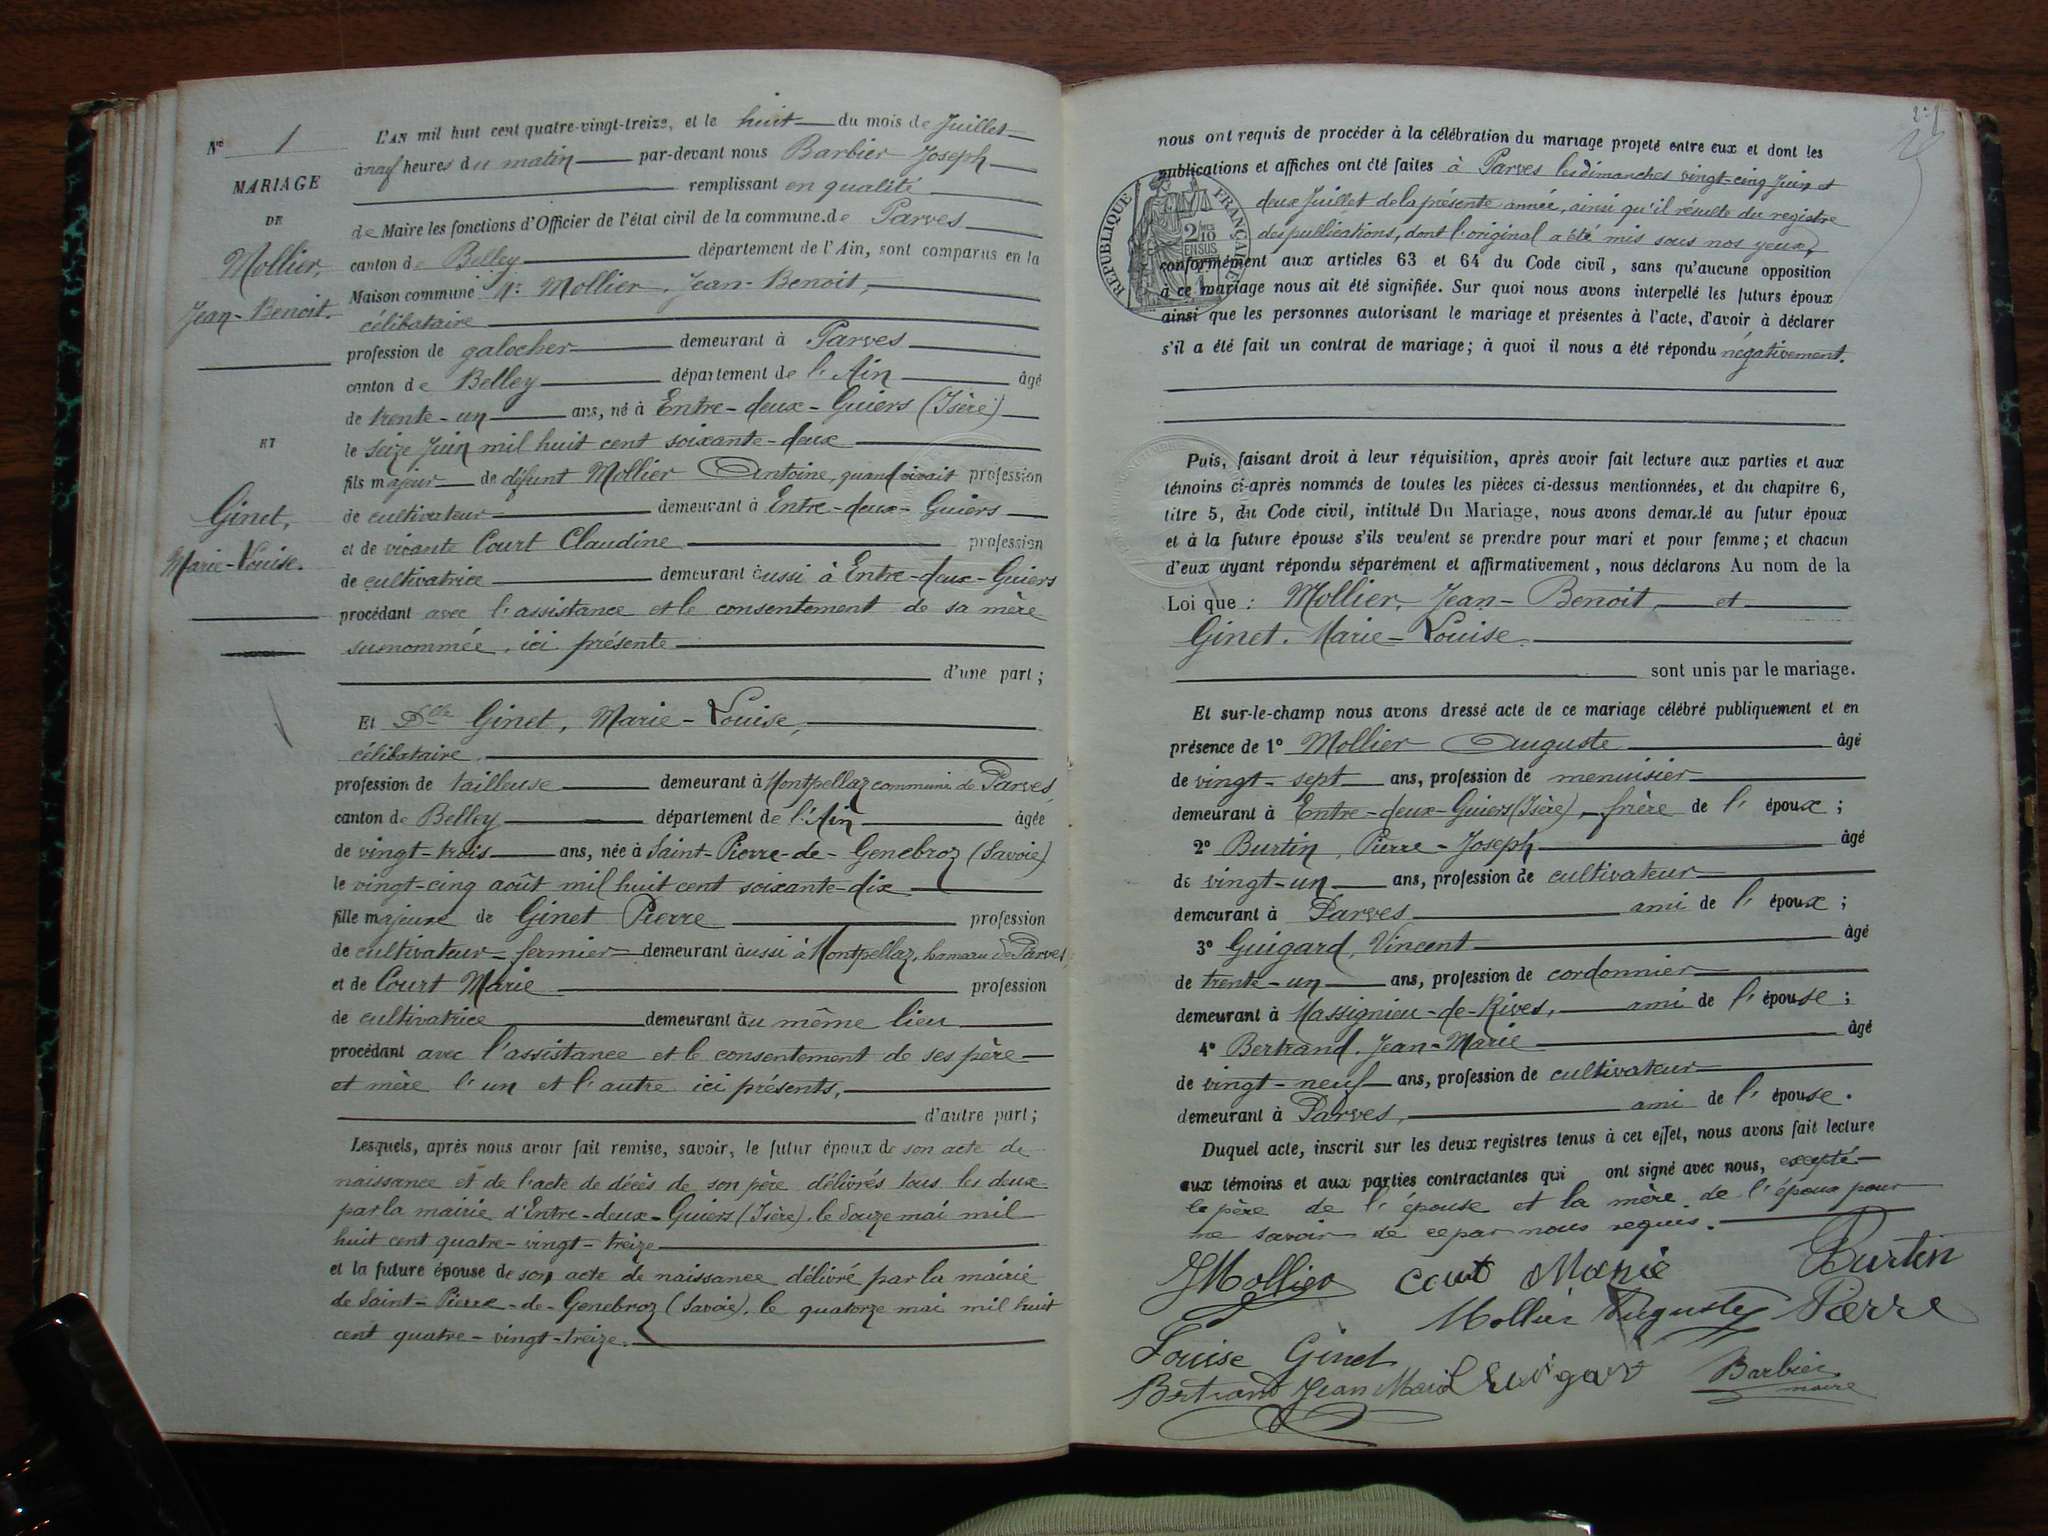 Nº 1
MARIAGE
DE
Mollier,
Jean-Benoit.
ET
Ginet,
Marie-Louise.
L'AN mil huit cent quatre-vingt-treize, et le huit du mois de Juillet
à neuf heures du matin par-devant nous Barbier Joseph
remplissant en qualité
de Maire les fonctions d'Officier de l'état civil de la commune de Parves
canton de Belley département de l'Ain, sont comparus en la
Maison commune Mr Mollier, Jean-Benoit,
célibataire
profession de galocher demeurant à Parves
canton de Belley département de l'Ain âgé
de trente-un ans, né à Entre-deux-Guiers (Isère)
le seize Juin mil huit cent soixante-deux
fils majeur de défunt Mollier Antoine, quand vivait profession
de cultivateur demeurant à Entre-deux-Guiers
et de vivante Court Claudine profession
de cultivatrice demeurant aussi à Entre-deux-Guiers
procédant avec l'assistance et le consentement de sa mère
susnommée, ici présente
d'une part;
Et Dlle Ginet, Marie-Louise,
célibataire
profession de tailleuse demeurant à Montpellaz commune de Parves
canton de Belley département de l'Ain âgée
de vingt-trois ans, née à Saint-Pierre-de-Genebroz (Savoie)
le vingt-cinq août mil huit cent soixante-dix
fille majeure de Ginet Pierre profession
de cultivateur-fermier demeurant aussi à Montpellaz, hameau de Parves,
et de Court Marie profession
de cultivatrice demeurant au même lieu
procédant avec l'assistance et le consentement de ses père
et mère l'un et l'autre ici présents,
d'autre part;
Lesquels, après nous avoir fait remise, savoir, le futur époux de son acte de
naissance et de l'acte de décès de son père délivrés tous les deux
par la mairie d'Entre-deux-Guiers (Isère), le douze mai mil
huit cent quatre-vingt-treize
et la future épouse de son acte de naissance délivré par la mairie
de Saint-Pierre-de-Genebroz (Savoie), le quatorze mai mil huit
cent quatre-vingt-treize.
nous ont requis de procéder à la célébration du mariage projeté entre eux et dont les
publications et affiches ont été faites à Parves les dimanches vingt-cinq Juin et
deux Juillet de la présente année, ainsi qu'il résulte du registre
des publications, dont l'original a été mis sous nos yeux,
conformément aux articles 63 et 64 du Code civil, sans qu'aucune opposition
à ce mariage nous ait été signifiée. Sur quoi nous avons interpellé les futurs époux
ainsi que les personnes autorisant le mariage et présentes à l'acte, d'avoir à déclarer
s'il a été fait un contrat de mariage; à quoi il nous a été répondu négativement.
RÉPUBLIQUE FRANÇAISE
Puis, faisant droit à leur réquisition, après avoir fait lecture aux parties et aux
témoins ci-après nommés de toutes les pièces ci-dessus mentionnées, et du chapitre 6,
titre 5, du Code civil, intitulé Du Mariage, nous avons demandé au futur époux
et à la future épouse s'ils veulent se prendre pour mari et pour femme; et chacun
d'eux ayant répondu séparément et affirmativement, nous déclarons Au nom de la
Loi que: Mollier, Jean-Benoit, et
Ginet, Marie-Louise.
sont unis par le mariage.
Et sur-le-champ nous avons dressé acte de ce mariage célébré publiquement et en
présence de 1º Mollier Auguste âgé
de vingt-sept ans, profession de menuisier
demeurant à Entre-deux-Guiers (Isère), frère de l'époux;
2º Burtin, Pierre-Joseph âgé
de vingt-un ans, profession de cultivateur
demeurant à Parves ami de l'époux;
3º Guigard, Vincent âgé
de trente-un ans, profession de cordonnier
demeurant à Massignieu-de-Rives, ami de l'épouse;
4º Bertrand, Jean-Marie âgé
de vingt-neuf ans, profession de cultivateur
demeurant à Parves, ami de l'épouse.
Duquel acte, inscrit sur les deux registres tenus à cet effet, nous avons fait lecture
aux témoins et aux parties contractantes qui ont signé avec nous, excepté
le père de l'épouse et la mère de l'époux pour
ne savoir de ce par nous requis.
JMollier Court Marie Burtin
Mollier Auguste Pierre
Louise Ginet
Bertrand Jean Marie Guigard Barbier
maire